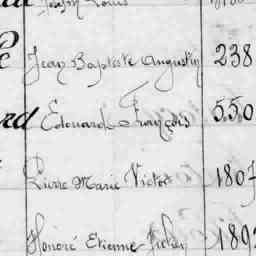 Joseph Louis
Jean Baptiste Augustin 238
rd Edouard François 550
Pierre Marie Victor 1807
Honoré Etienne